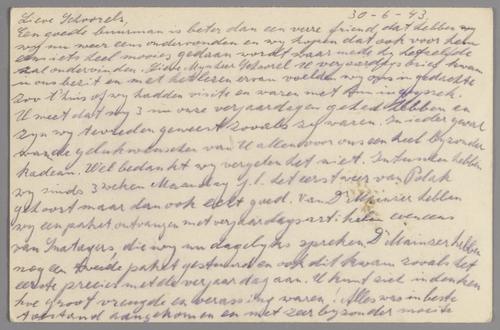 Lieve Schoorels, 30-6-43.
Een goede buurman is beter dan een verre friend, dat hebben wy
nog nu weer eens ondervonden en wy hopen dat ook voor hem
eens iets heel moois gedaan wordt waar mede hy hetzelfde
zal ondervinden. Lieve Mynheer Schoorel Uw verjaardagsbrief kwam
in ons bezit en met het lezen ervan voelden wy ons in gedachte
zoo t'huis of wy hadden visite en waren met hun in gesprek.
U weet dat wy 3 nu onze verjaardagen gehad hebben en
zyn wy tevreden geweest zooals ze waren. In ieder geval
waren de gelukwenschen van U allen voor ons een heel byzonder
kadeau. Wel bedankt wy vergeten het niet. Intusschen hebben
wy sinds 3 weken Maandag j.l. het eerst weer van Polak
gehoort maar dan ook echt goed. Van Dr Mainser hebben
wy een paket ontvangen met verjaardagsartikelen eveneens
van Snatagers die wy nu dagelyks spreken. Dr Mainser hebben
nog een tweede paket gestuurd en ook dit kwam zooals het
eerste precies met de verjaardag aan. U kunt zich indenken
hoe groot vreugde en verassing waren. Alles was in beste
toestand aangekomen en met zeer byzonder mooie